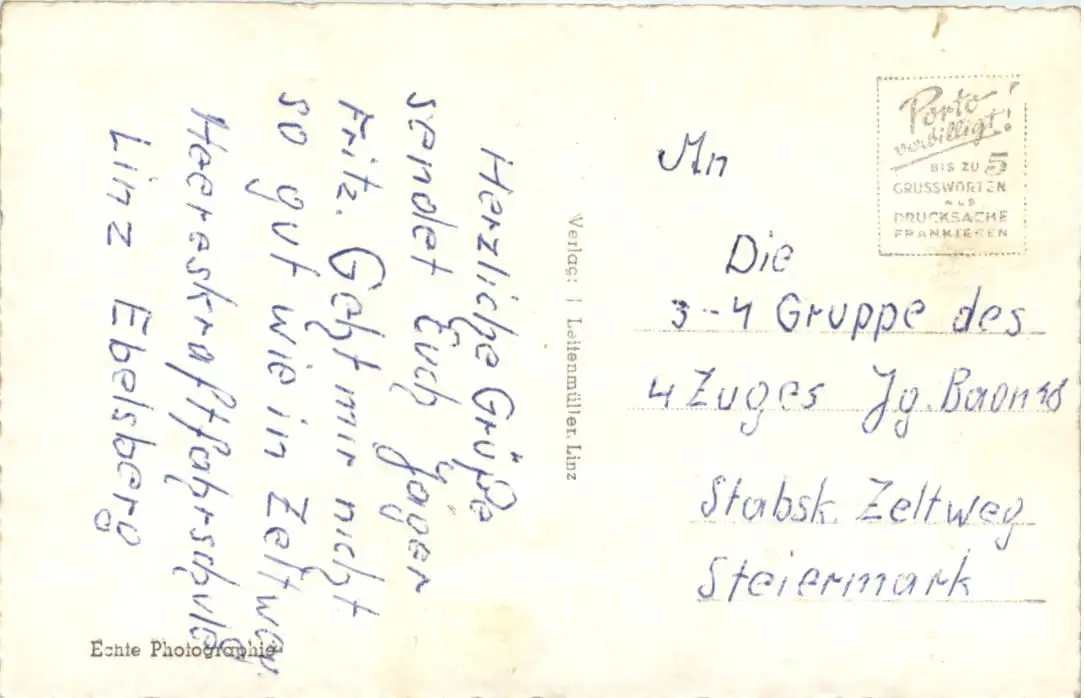 Herzliche Grüße
sendet Euch Jäger
Fritz. Geht mir nicht
so gut wie in Zeltweg.
Heereskraftfahrschule
Linz Ebelsberg
Echte Photographie
Verlag: J Leitenmüller, Linz
Porto
verbilligt!
BIS ZU 5
GRUSSWORTEN
ALS
DRUCKSACHE
FRANKIEREN
An
Die
3-4 Gruppe des
4 Zuges Jg. Baon 18
Stabsk. Zeltweg
Steiermark